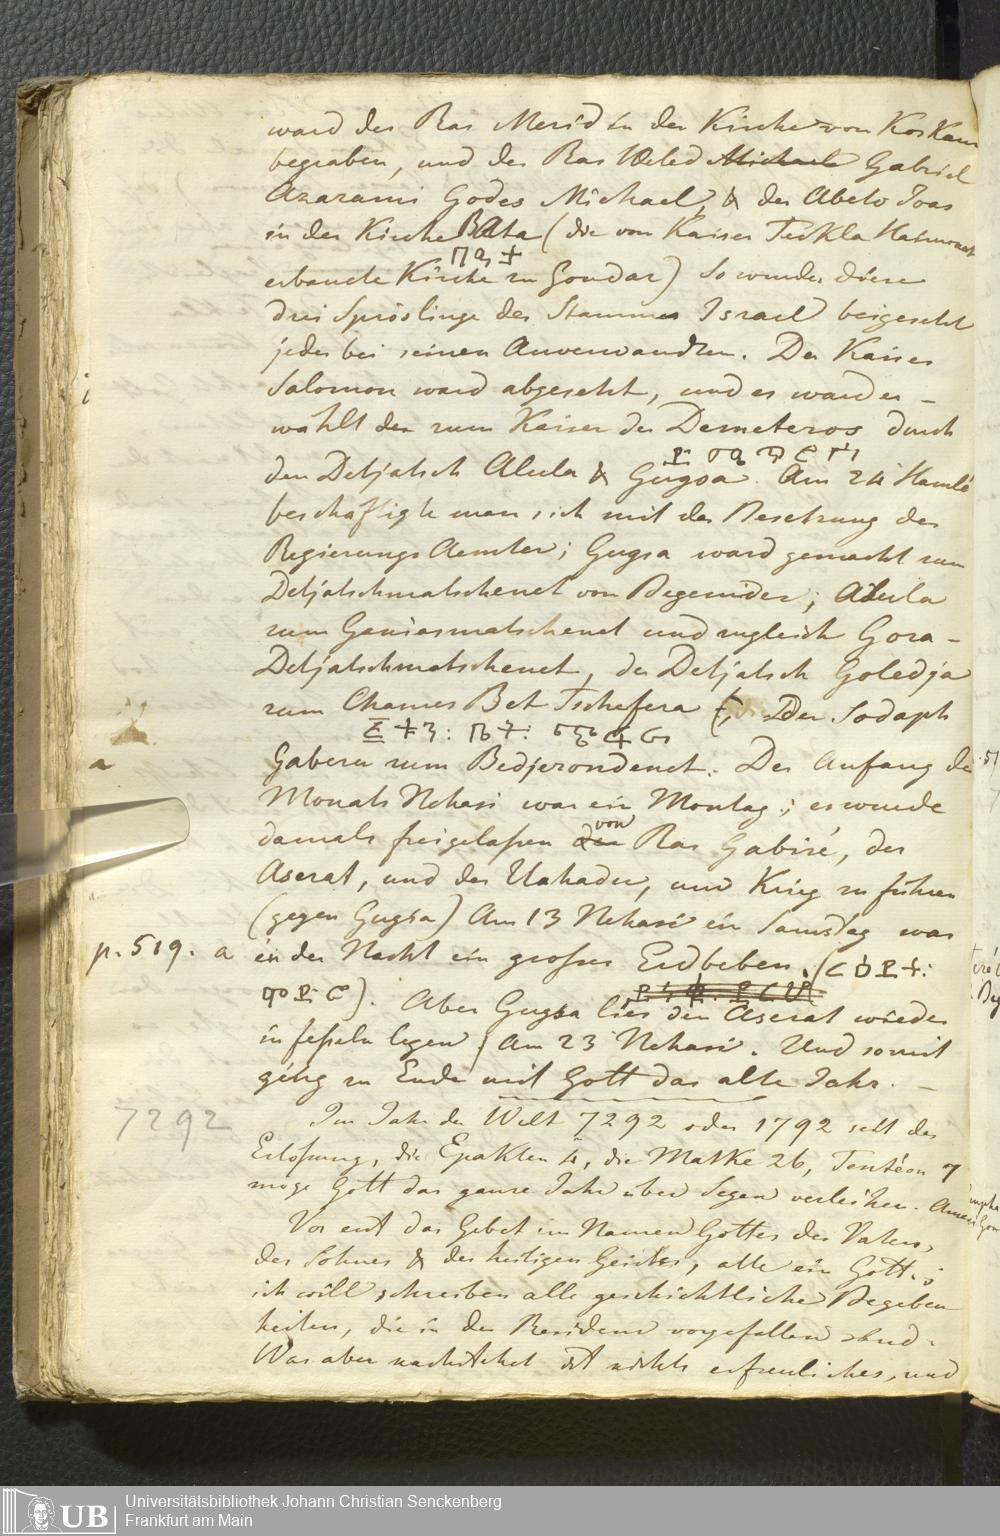 ward der Ras Merid in der Kirche von Koskam
begraben, und der Ras Weled Michael Gabriel
Azarami Godes Michael, & der Abeto Joas
in der Kirche BAta (die von Kaiser Teckla Haimanot
erbaute Kirche zu Gondar) So wurden diese
drei Spröslinge des Stammes Israel beigesetzt
jeder bei seinen Anverwandten. Der Kaiser
Salomon ward abgesetzt, und es ward er-
wählt der zum Kaiser der Demeteros durch
den Detjatsch Alula & Gugsa. Am 24 Hamlé
beschäftigte man sich mit der Besetzung der
Regierungs Aemter; Gugsa ward gemacht zum
Detjatschmatschenet von Begemider; Alula
zum Geniasmatschenet und zugleich Gora-
Detjatschmatschenet, der Detjatsch Goledja
zum Chames Bet Tschefera, Der Sodaph
Gaberu zum Bedjerondenet. Der Anfang des
Monats Nehasi war ein Montag; es wurde
damals freigelassen von Ras Gabiré, der
Aserat, und der Uahadu, um Krieg zu führen
(gegen Gugsa) Am 13 Nehasi ein Samstag war
p. 519. a in der Nacht ein großes Erdbeben. (
Aber Gugsa lies den Aserat wieder
in fesseln legen, am 23 Nehasi. Und somit
ging zu Ende mit Gott das alte Jahr. –
7292
Im Jahr der Welt 7292 oder 1792 seit der
Erlösung, die Epakten 4, die Matke 26, Tentéon 7
möge Gott das ganze Jahr über Segen verleihen. Amen
Vor erst das Gebet im Namen Gottes des Vaters,
des Sohnes & des heiligen Geistes, alle ein Gott.;
ich will schreiben alle geschichtliche Begeben
heiten, die in der Residenz vorgefallen sind.
Was aber nachstehet ist nichts erfreuliches, und
UB
Universitätsbibliothek Johann Christian Senckenberg
Frankfurt am Main